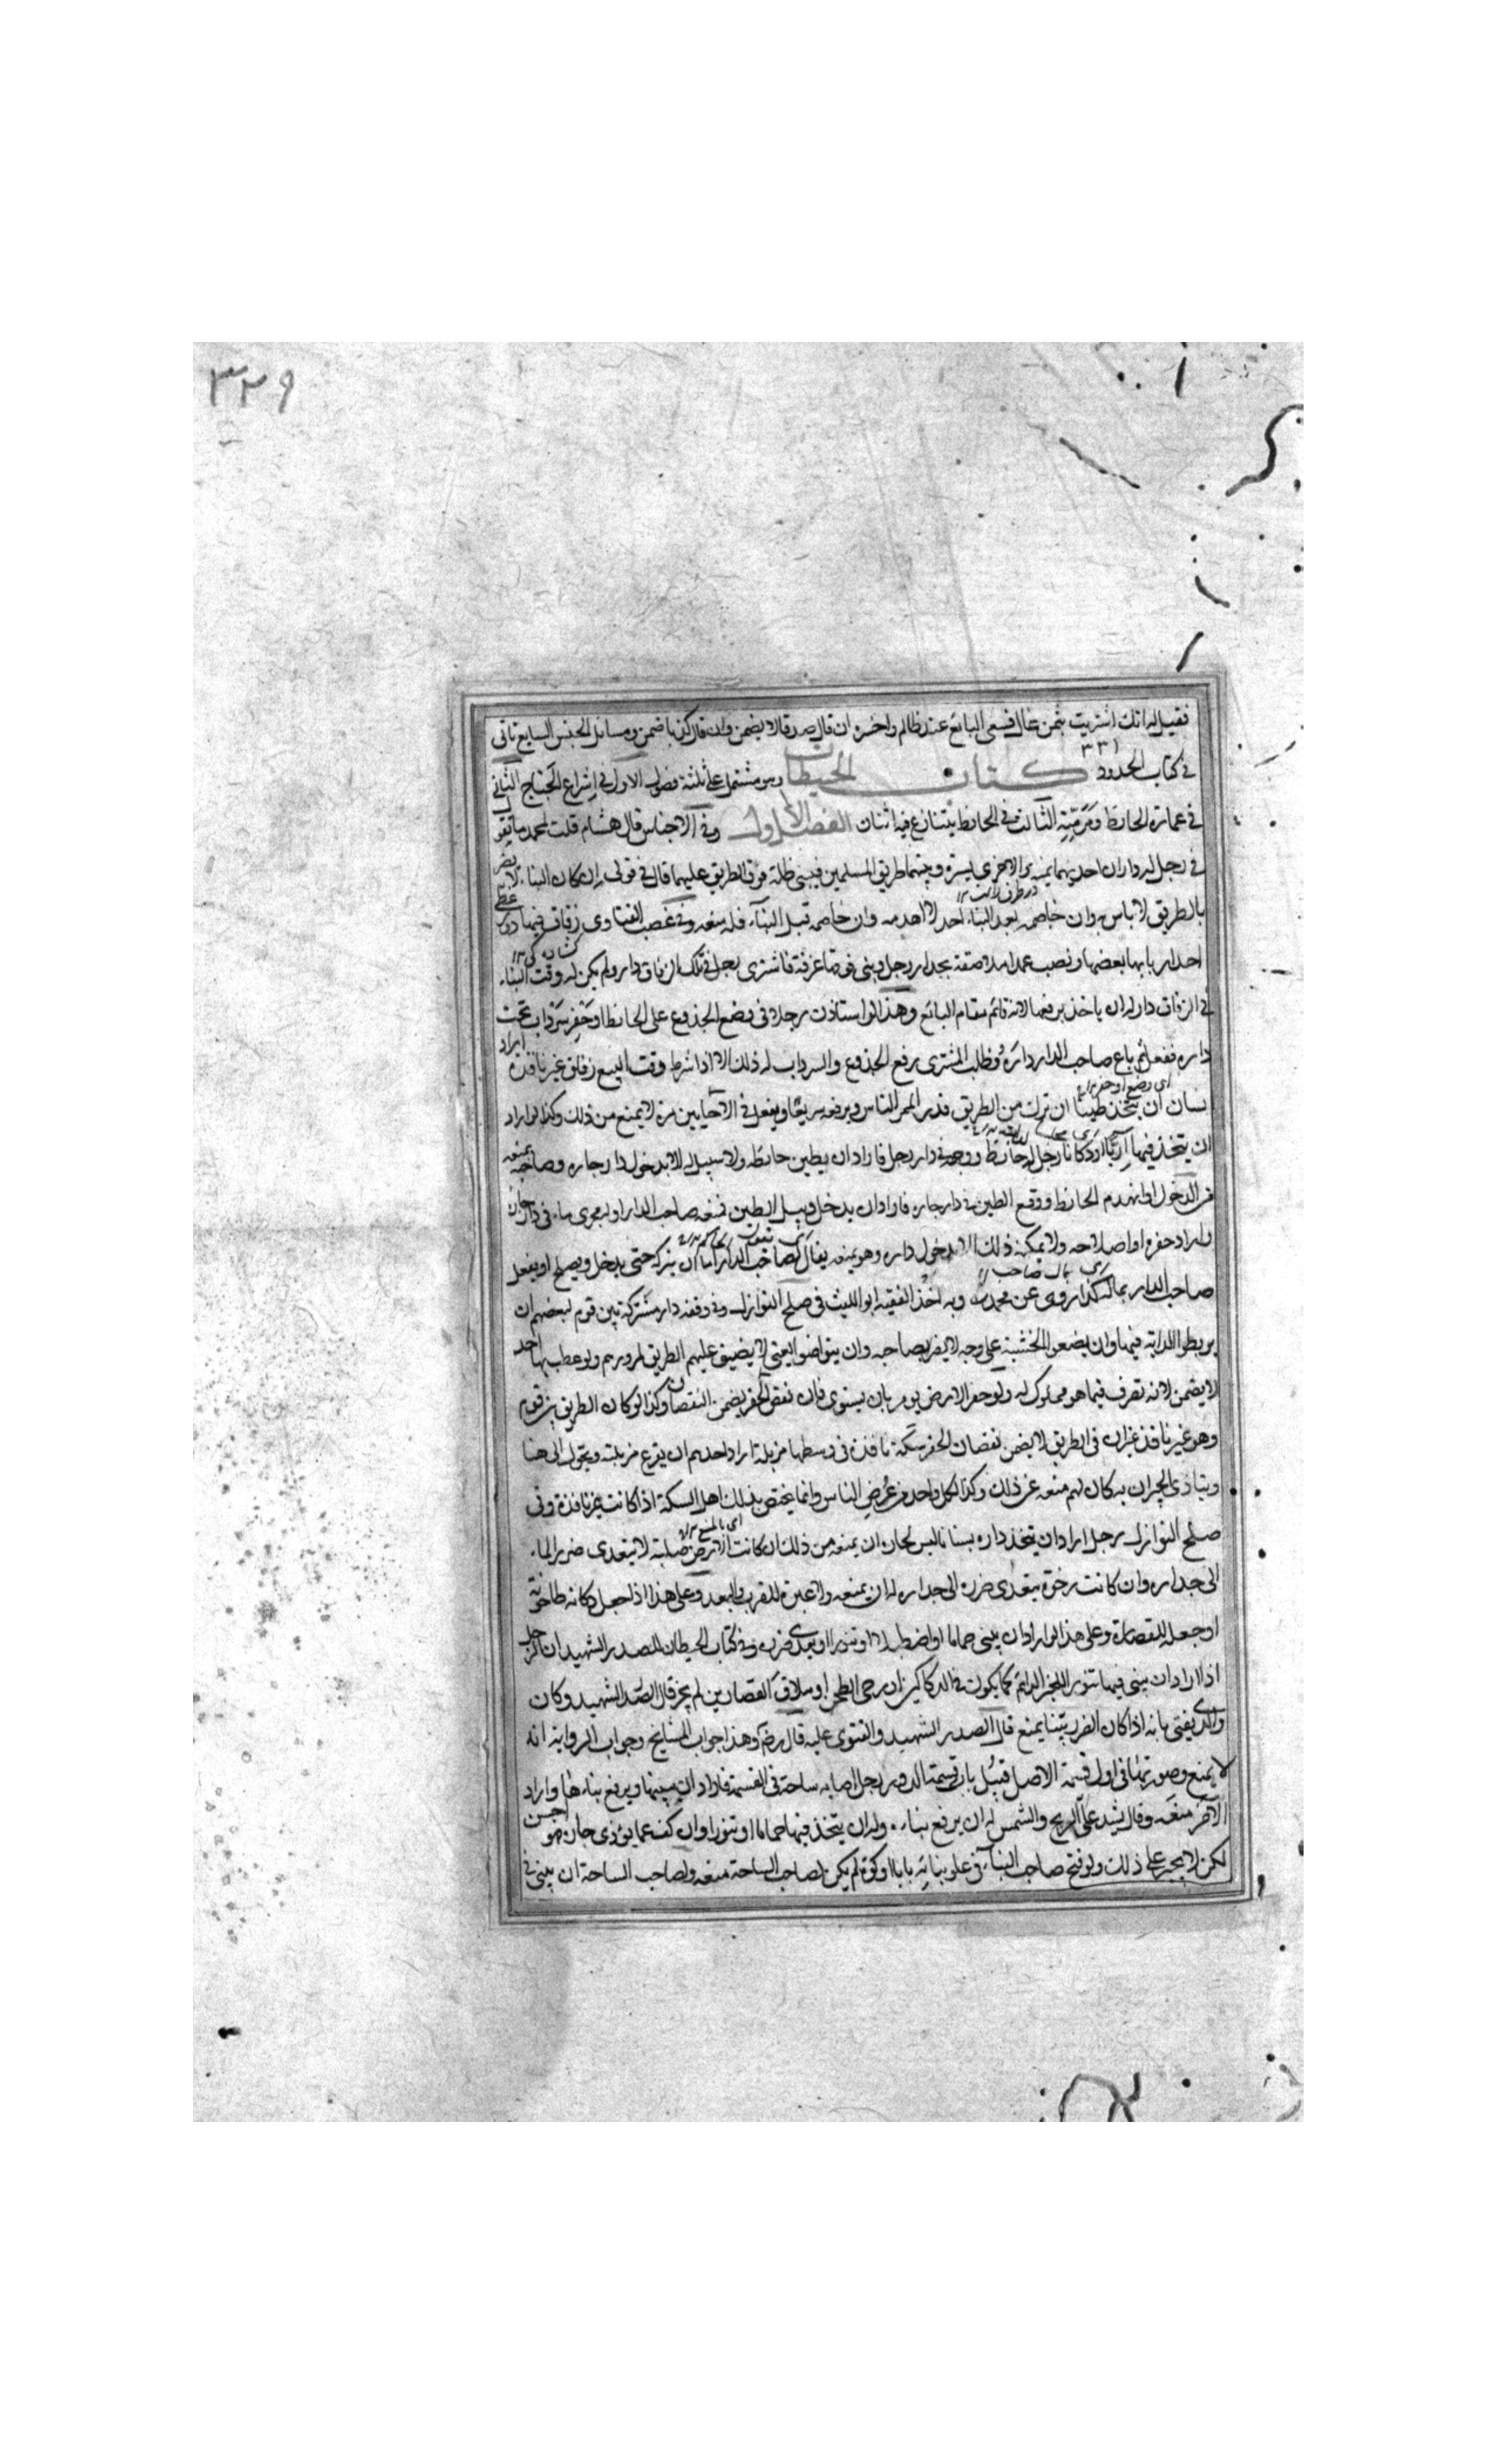 ٣٢٩
فقيل له انك اشتريت بثمن غال فسعى البائع عند ظالم واخسره ان قال صدقا لا يضمن وان قال كذبا ضمن ومسائل الجنس السابع تاتى
٣٣١
فى كتاب الحدود كتاب الحيطان وهو مشتمل على ثلثة فصول الاول فى اشراع الجناح الثانى
فى عمارة الحائط ومرمته الثالث فى الحائط يتنازع فيه اثنان الفصل الاول وفى الاجناس قال هشام قلت لمحمد ما تقول
فى رجل له داران احديهما يمنة والاخرى يسرة وبينهما طريق المسلمين فيبنى ظلة فوق الطريق عليهما قال فى قولى ان كان البناء لا يضر
بالطريق لا باس وان خاصمه بعد البناء احد لا اهدمه وان خاصمه قبل البناء فله منعه وفى غصب الفتاوى زقاق فيها دور
احد اربابها بعضها ونصب عمدا ملاصقة بجدار رجل وبنى فوقها غرفة فاشترى رجل فى تلك الزقاق دارا ولم يكن له وقت البناء
فى الزقاق دار له ان ياخذ برفعها لانه قائم مقام البائع وهذا لو استاذن رجلا فى وضع الجذوع على الحائط او حفر سرداب تحت
داره ففعل ثم باع صاحب الدار داره وطلب المشترى رفع الجذوع والسرداب له ذلك الا اذا شرط وقت البيع زقاق غير نافذة اراد
اى وضع او حفر
نسان ان يتخذ طينا ان ترك من الطريق قدر الممر للناس ويرفعه سريعا ويفعل فى الاحايين مرة لا يمنع من ذلك وكذا لو اراد
ان يتخذ فيها آريا او دكانا رجل له حائط ووجهه فى دار رجل فاراد ان يطين حائطه ولا سبيل له الا بدخول دار جاره وصاحبه يمنعه
من الدخول او انهدم الحائط ووقع الطين فى دار جاره فاراد ان يدخل ويبل الطين فمنعه صاحب الدار او له مجرى ماء فى دار جاره
واراد حفره او اصلاحه ولا يمكنه ذلك الا بدخول داره وهو يمنعه يقال لصاحب الدار اما ان يتركه حتى يدخل ويصلح او يفعل
صاحب الدار بماله كذا روى عن محمد وبه اخذ الفقيه ابو الليث فى صلح النوازل وفى وقفه دار مشتركة بين قوم لبعضهم ان
يربطوا الدابة فيها وان يضعوا الخشبة على وجه لا يضر بصاحبه وان يتواضوا يعنى لا يضيق عليهم الطريق لمرورهم ولو عطب بها احد
لا يضمن لانه تصرف فيما هو مملوك له ولو حفر الارض يومر بان يسوى فان نقص الحفر يضمن النقصان وكذا لو كان الطريق بين قوم
وهو غير نافذ غير ان فى الطريق لا يضمن نقصان الحفر سكة نافذة فى وسطها مزبلة اراد احدهم ان يفرغ مزبلته ويحول الى هنا
ويتاذى الجيران به كان لهم منعه عن ذلك وكذا لكل واحد من عرض الناس وانما يختص بذلك اهل السكة اذا كانت غير نافذة وفى
صلح النوازل رجل اراد ان يتخذ داره بستانا ليس لجاره ان يمنعه من ذلك ان كانت الارض صلبة لا يتعدى ضرر الماء
الى جداره وان كانت رخوة يتعدى ضرره الى جداره له ان يمنعه ولا عبرة للقرب والبعد وعلى هذا اذا جعل دكانه طاحونة
او جعله للقصارة وعلى هذا لو اراد ان يبنى حماما او اصطبلا او تنورا او يعدى ضرره وفى كتاب الحيطان للصدر الشهيد ان الرجل
اذا اراد ان يبنى فيها تنور الخبز الدائم كما يكون فى الدكاكين او رحى الطحن او مدقا للقصارين لم يجز قال الصدر الشهيد وكان
والدى يفتى بانه اذا كان الضرر بينا يمنع قال الصدر الشهيد والفتوى عليه قال رض وهذا جواب المشايخ وجواب الرواية انه
لا يمنع وصورتها فى اول قسمة الاصل قبيل باب قسمة الدور رجل اصابه ساحة فى القسمة فاراد ان يبنيها ويرفع بناءها واراد
الآخر منعه وقال يسد على الريح والشمس له ان يرفع بناءه وله ان يتخذ فيها حماما او تنورا وان كف عما يؤذى جاره هو احسن
لكن لا يجبر على ذلك ولو فتح صاحب البناء فى علو بنائه بابا او كوة لم يكن لصاحب الساحة منعه ولصاحب الساحة ان يبنى فى